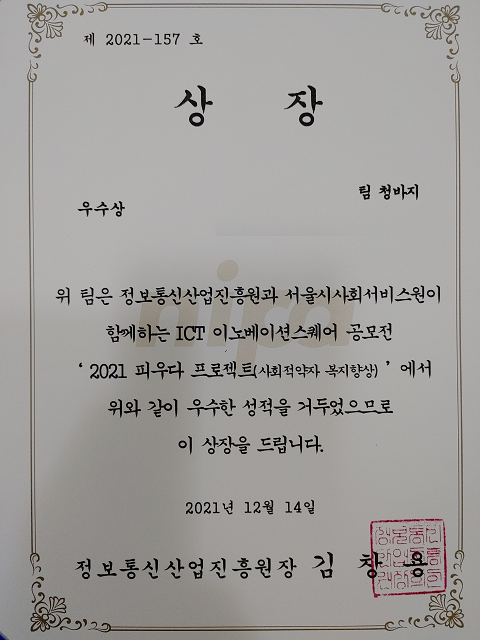 제 2021-157 호
상 장
팀 청바지
우수상
nipa
위 팀은 정보통신산업진흥원과 서울시사회서비스원이
함께하는 ICT 이노베이션스퀘어 공모전
‘ 2021 피우다 프로젝트(사회적약자 복지향상) ’ 에서
위와 같이 우수한 성적을 거두었으므로
이 상장을 드립니다.
2021년 12월 14일
정보통신산업진흥원장 김 창 용